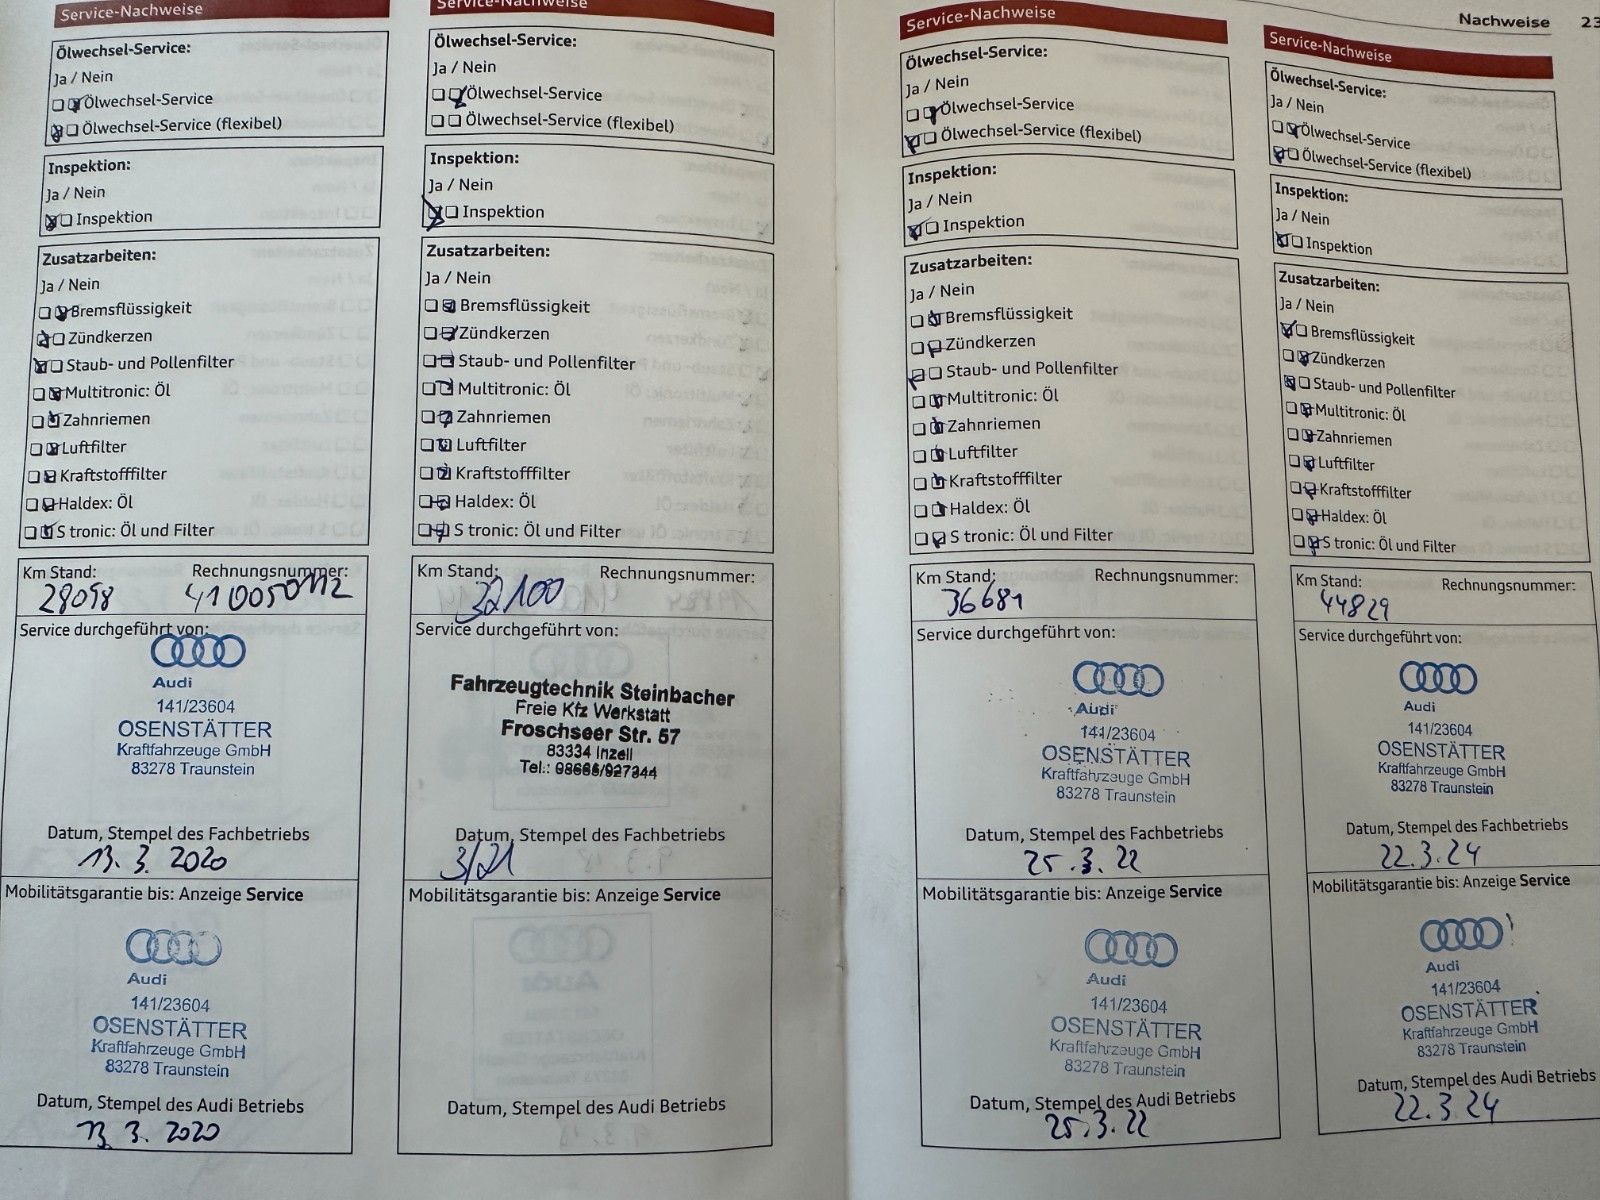 Nachweise 23
Service-Nachweise
Ölwechsel-Service:
Ja / Nein
Ölwechsel-Service
Ölwechsel-Service (flexibel)
Inspektion:
Ja / Nein
Inspektion
Zusatzarbeiten:
Ja / Nein
Bremsflüssigkeit
Zündkerzen
Staub- und Pollenfilter
Multitronic: Öl
Zahnriemen
Luftfilter
Kraftstofffilter
Haldex: Öl
S tronic: Öl und Filter
Km Stand: Rechnungsnummer:
28098
Service durchgeführt von:
Audi
141/23604
OSENSTÄTTER
Kraftfahrzeuge GmbH
83278 Traunstein
Datum, Stempel des Fachbetriebs
13. 3. 2020
Mobilitätsgarantie bis: Anzeige Service
Audi
141/23604
OSENSTÄTTER
Kraftfahrzeuge GmbH
83278 Traunstein
Datum, Stempel des Audi Betriebs
13. 3. 2020
Service-Nachweise
Ölwechsel-Service:
Ja / Nein
Ölwechsel-Service
Ölwechsel-Service (flexibel)
Inspektion:
Ja / Nein
Inspektion
Zusatzarbeiten:
Ja / Nein
Bremsflüssigkeit
Zündkerzen
Staub- und Pollenfilter
Multitronic: Öl
Zahnriemen
Luftfilter
Kraftstofffilter
Haldex: Öl
S tronic: Öl und Filter
Km Stand: Rechnungsnummer:
32100
Service durchgeführt von:
Fahrzeugtechnik Steinbacher
Freie Kfz Werkstatt
Froschseer Str. 57
83334 Inzell
Tel.: 08665/927344
Datum, Stempel des Fachbetriebs
3/21
Mobilitätsgarantie bis: Anzeige Service
Datum, Stempel des Audi Betriebs
Service-Nachweise
Ölwechsel-Service:
Ja / Nein
Ölwechsel-Service
Ölwechsel-Service (flexibel)
Inspektion:
Ja / Nein
Inspektion
Zusatzarbeiten:
Ja / Nein
Bremsflüssigkeit
Zündkerzen
Staub- und Pollenfilter
Multitronic: Öl
Zahnriemen
Luftfilter
Kraftstofffilter
Haldex: Öl
S tronic: Öl und Filter
Km Stand: Rechnungsnummer:
36681
Service durchgeführt von:
Audi
141/23604
OSENSTÄTTER
Kraftfahrzeuge GmbH
83278 Traunstein
Datum, Stempel des Fachbetriebs
25.3.22
Mobilitätsgarantie bis: Anzeige Service
Audi
141/23604
OSENSTÄTTER
Kraftfahrzeuge GmbH
83278 Traunstein
Datum, Stempel des Audi Betriebs
25.3.22
Service-Nachweise
Ölwechsel-Service:
Ja / Nein
Ölwechsel-Service
Ölwechsel-Service (flexibel)
Inspektion:
Ja / Nein
Inspektion
Zusatzarbeiten:
Ja / Nein
Bremsflüssigkeit
Zündkerzen
Staub- und Pollenfilter
Multitronic: Öl
Zahnriemen
Luftfilter
Kraftstofffilter
Haldex: Öl
S tronic: Öl und Filter
Km Stand: Rechnungsnummer:
44829
Service durchgeführt von:
Audi
141/23604
OSENSTÄTTER
Kraftfahrzeuge GmbH
83278 Traunstein
Datum, Stempel des Fachbetriebs
22.3.24
Mobilitätsgarantie bis: Anzeige Service
Audi
141/23604
OSENSTÄTTER
Kraftfahrzeuge GmbH
83278 Traunstein
Datum, Stempel des Audi Betriebs
22.3.24